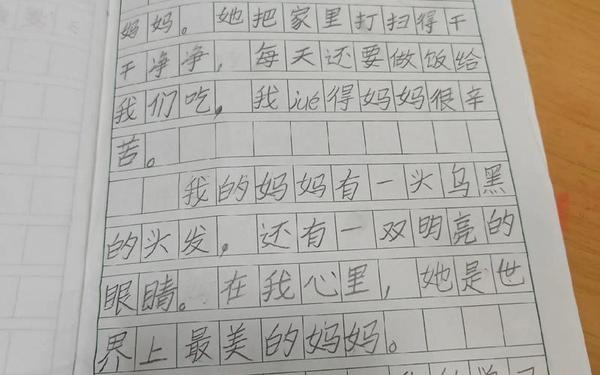 妈妈。她把家里打扫得干
干净净，每天还要做饭给
我们吃，我jué得妈妈很辛
苦。
我的妈妈有一头乌黑
的头发，还有一双明亮的
眼睛。在我心里，她是世
界上最美的妈妈。